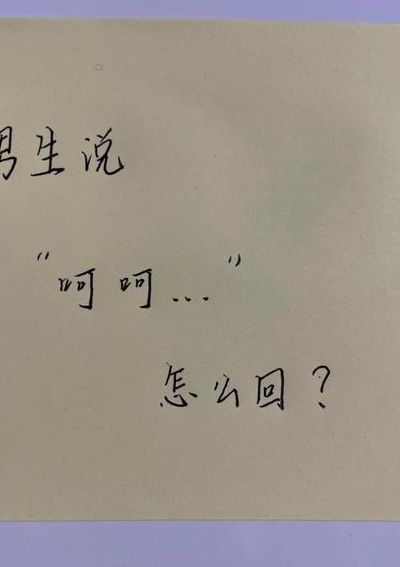 男生说
“呵呵...”
怎么回？